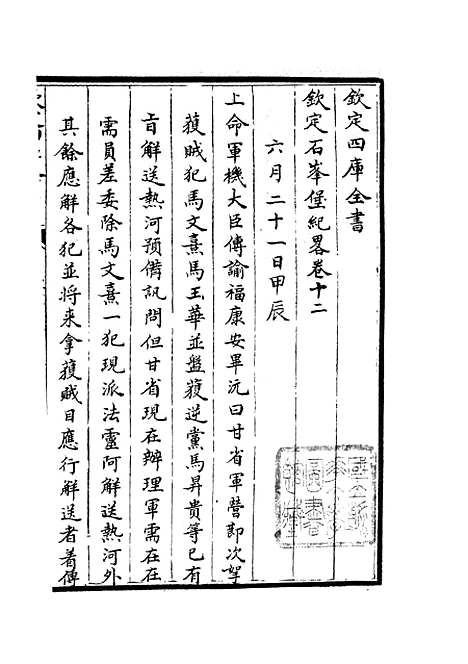 欽定四庫全書
欽定石峯堡紀畧卷十二
六月二十一日甲辰
上命軍機大臣傳諭福康安畢沅曰甘省軍營即次拏
獲賊犯馬文熹馬玉華並盤獲逆黨馬昇貴等已有
旨解送熱河預備訊問但甘省現在辦理軍需在在
需員差委除馬文熹一犯現派法靈阿解送熱河外
其餘應解各犯並將来拿獲賊目應行解送者着傳
圖書